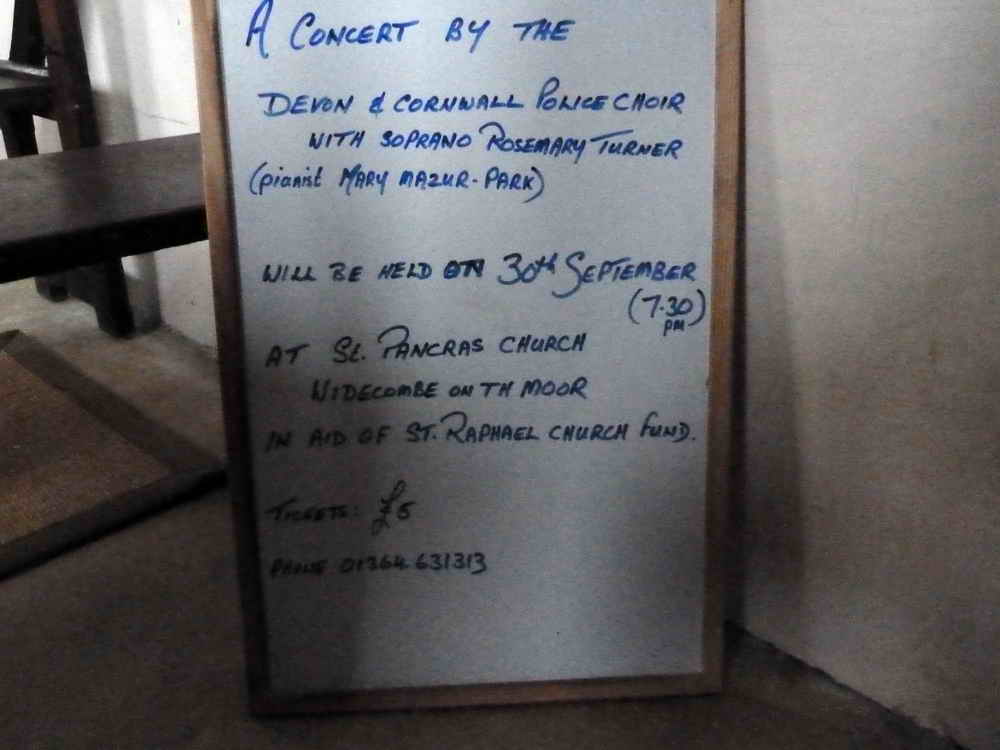 A CONCERT BY THE
DEVON & CORNWALL POLICE CHOIR
WITH SOPRANO ROSEMARY TURNER
(pianist MARY MAZUR-PARK)
WILL BE HELD ON 30th SEPTEMBER
(7.30)
pm
AT St. PANCRAS CHURCH
WIDECOMBE ON TH MOOR
IN AID OF ST. RAPHAEL CHURCH FUND.
TICKETS: £5
PHONE 01364 631313